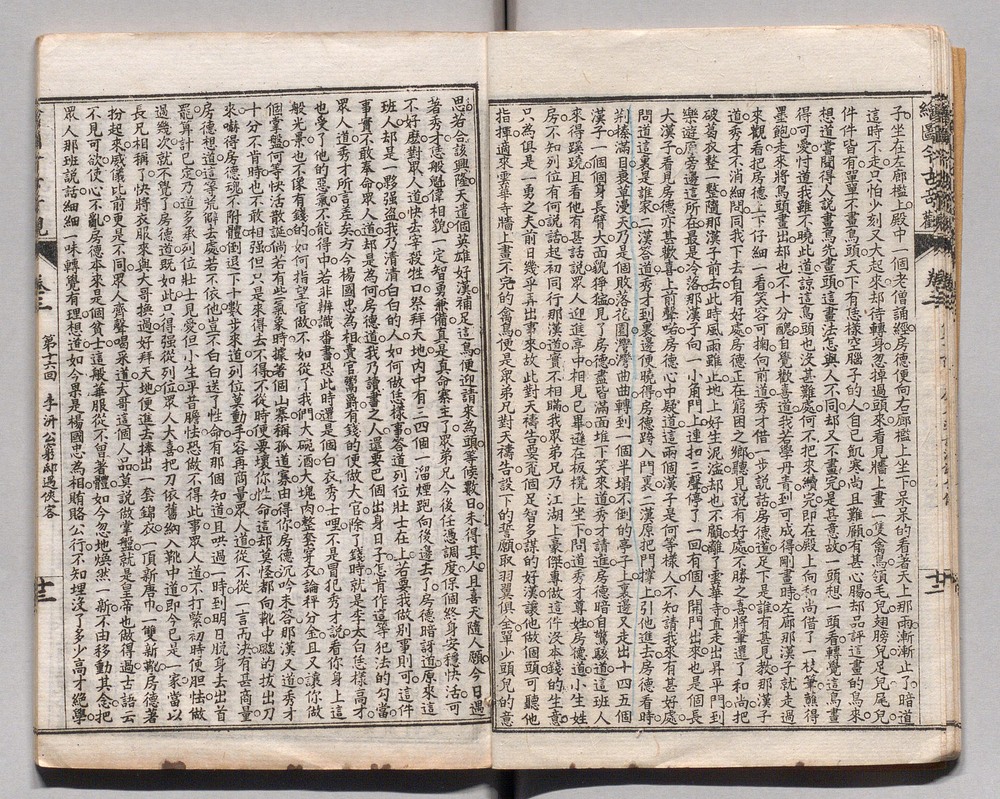 子坐在左廊檻上殿中一個老僧誦經房德便向右廊檻上坐下呆呆的看著天上那雨漸漸止了暗道
這時不走只怕少刻又大起來却待轉身忽掉過頭來看見牆上畫一隻禽鳥領毛兒翅膀兒足兒尾兒
件件皆有單單不畫鳥頭天下有恁樣空腦子的人自己飢寒尚且難顧有甚心腸却品評這畫的鳥來
想道嘗聞得人說畫鳥先畫頭這畫法怎與人不同却又不畫完是甚意故一頭想一頭看轉覺這鳥畫
得可愛忖道我雖不曉此道諒這鳥頭也沒甚難處何不把來續完即在殿上向和尚借了一枝筆蘸得
墨飽走來將鳥頭畫出却也不十分醜自覺歡喜道我若學丹青到可成得剛畫時左廊那漢子就走過
來觀看把房德上下仔細一看笑容可掬向前道秀才借一步說話房德道足下是誰有甚見教那漢子
道秀才不消細問同我下去自有好處房德正在窮困之鄉聽見說有好處不勝之喜將筆還了和尚把
破葛衣整一整隨那漢子前去此時風雨雖止地上好生泥濘却也不顧離了雲華寺直走出昇平門到
樂遊原旁邊這所在最是冷落那漢子向一小角門上連扣三聲停了一回有個人開門出來也是個長
大漢子看見房德亦甚歡喜上前聲喏房德心中疑道這兩個漢子是何等樣人不知請我來有甚好處
問道這裏是誰家二漢答道秀才到裏邊便曉得房德跨入門裏二漢原把門撑上引他進去房德看時
荆榛滿目衰草漫天乃是個敗落花園灣灣曲曲轉到一個半塌不倒的亭子上裏邊又走出十四五個
漢子一個個身長臂大面貌猙獰見了房德盡皆滿面堆下笑來道秀才請進房德暗自驚駭道這班人
來得蹊蹺且看他有甚話說眾人迎進亭中相見已畢遜在板櫈上坐下問道秀才尊姓房德道小生姓
房不知列位有何說話起初同行那漢道實不相瞞我眾弟兄乃江湖上豪傑專做這件沒本錢的生意
只為俱是一勇之夫前日幾乎弄出事來故此對天禱告要覓個足智多謀的好漢讓他做個頭可聽他
指揮適來雲華寺牆上畫不完的禽鳥便是眾弟兄對天禱告設下的誓願取羽翼俱全單少頭兒的意
思若合該興隆天遣個英雄好漢補足這鳥便迎請來為頭等候數日未得其人且喜天隨人願今日遇
著秀才恁般魁偉相貌一定智勇兼備真是真命寨主了眾弟兄今後任憑調度保個終身安穩快活可
不好麽對眾人道快去宰殺牲口祭拜天地內中有三四個一溜煙跑向後邊去了房德暗訝道原來這
班人却是一夥強盜我乃清清白白的人如何做恁樣事答道列位壯士在上若要我做別事則可這件
事實不敢奉命眾人道却是為何房德道我乃讀書之人還要巴個出身日子怎肯作這等犯法的勾當
眾人道秀才所言差矣方今楊國忠為相賣官鬻爵有錢的便做大官除了錢時就是李太白恁樣高才
也受了他的惡氣不能得中若非辨識番書恐此時還是個白衣秀士哩不是冒犯秀才說看你身上這
般光景也不像有錢的如何指望官做不如從了我們大碗酒大塊肉整套穿衣論秤分金且又讓你做
個掌盤何等快活散誕倘若有些氣象時據著個山寨稱孤道寡由得你房德沉吟未答那漢又道秀才
十分不肯時也不敢相強但只是來得去不得不從時便要壞你性命這却莫怪都向靴中颼的拔出刀
來嚇得房德魂不附體倒退下十數步來道列位莫動手容再商量眾人道從不從一言而決有甚商量
房德想道這等荒僻去處若不依他豈不白白送了性命有那個知道且哄過一時到明日脫身去出首
罷算計已定乃道多承列位壯士見愛但小生平昔膽怯恐做不得此事眾人道不打緊初時便膽怯做
過幾次就不覺了房德道既如此只得強從列位眾人大喜把刀依舊納入靴中道即今已是一家當以
長兄相稱了快將衣服來與大哥換過好拜天地便進去捧出一套錦衣一頂新唐巾一雙新靴房德著
扮起來威儀比前更是不同眾人齊聲喝采道大哥這個人品莫說做掌盤就是皇帝也做得過古語云
不見可欲使心不亂房德本來是個貧士這般華服從不曾著體如今忽地煥然一新不由移動其念把
眾人那班說話細細一味轉覺有理想道如今果是楊國忠為相賄賂公行不知埋沒了多少高才絕學
卷三
第十六回 李汧公窮邸遇俠客
十三
繪圖今古奇觀
十二